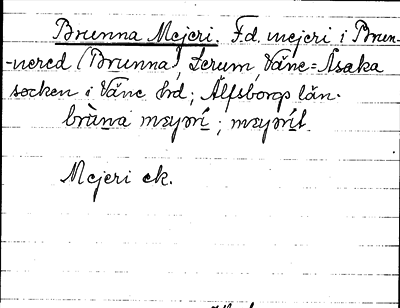 Brunna Mejeri. F.d. mejeri i Brun-
-nered (Brunna), Lerum, Väne-Åsaka
socken i Väne hrd; Älfsborgs län.
Mejeri ek.